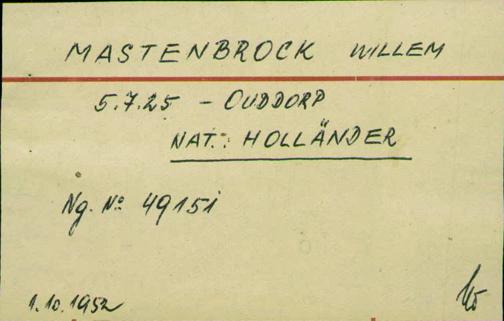 MASTENBROCK WILLEM
5.7.25 - OUDDORP
NAT.: HOLLÄNDER
Ng. No 49151
1.10.1952